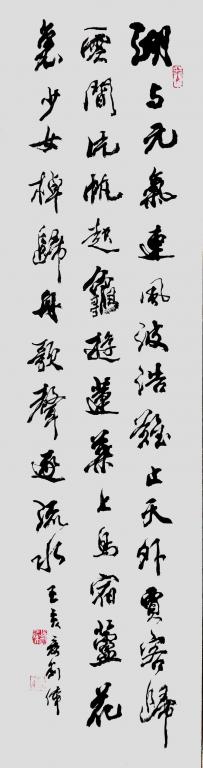 湖与元氣連風波浩難止天外賈客歸
雲間片帆起龜遊蓮葉上鳥宿蘆花
裏少女棹歸舟歌聲逐流水